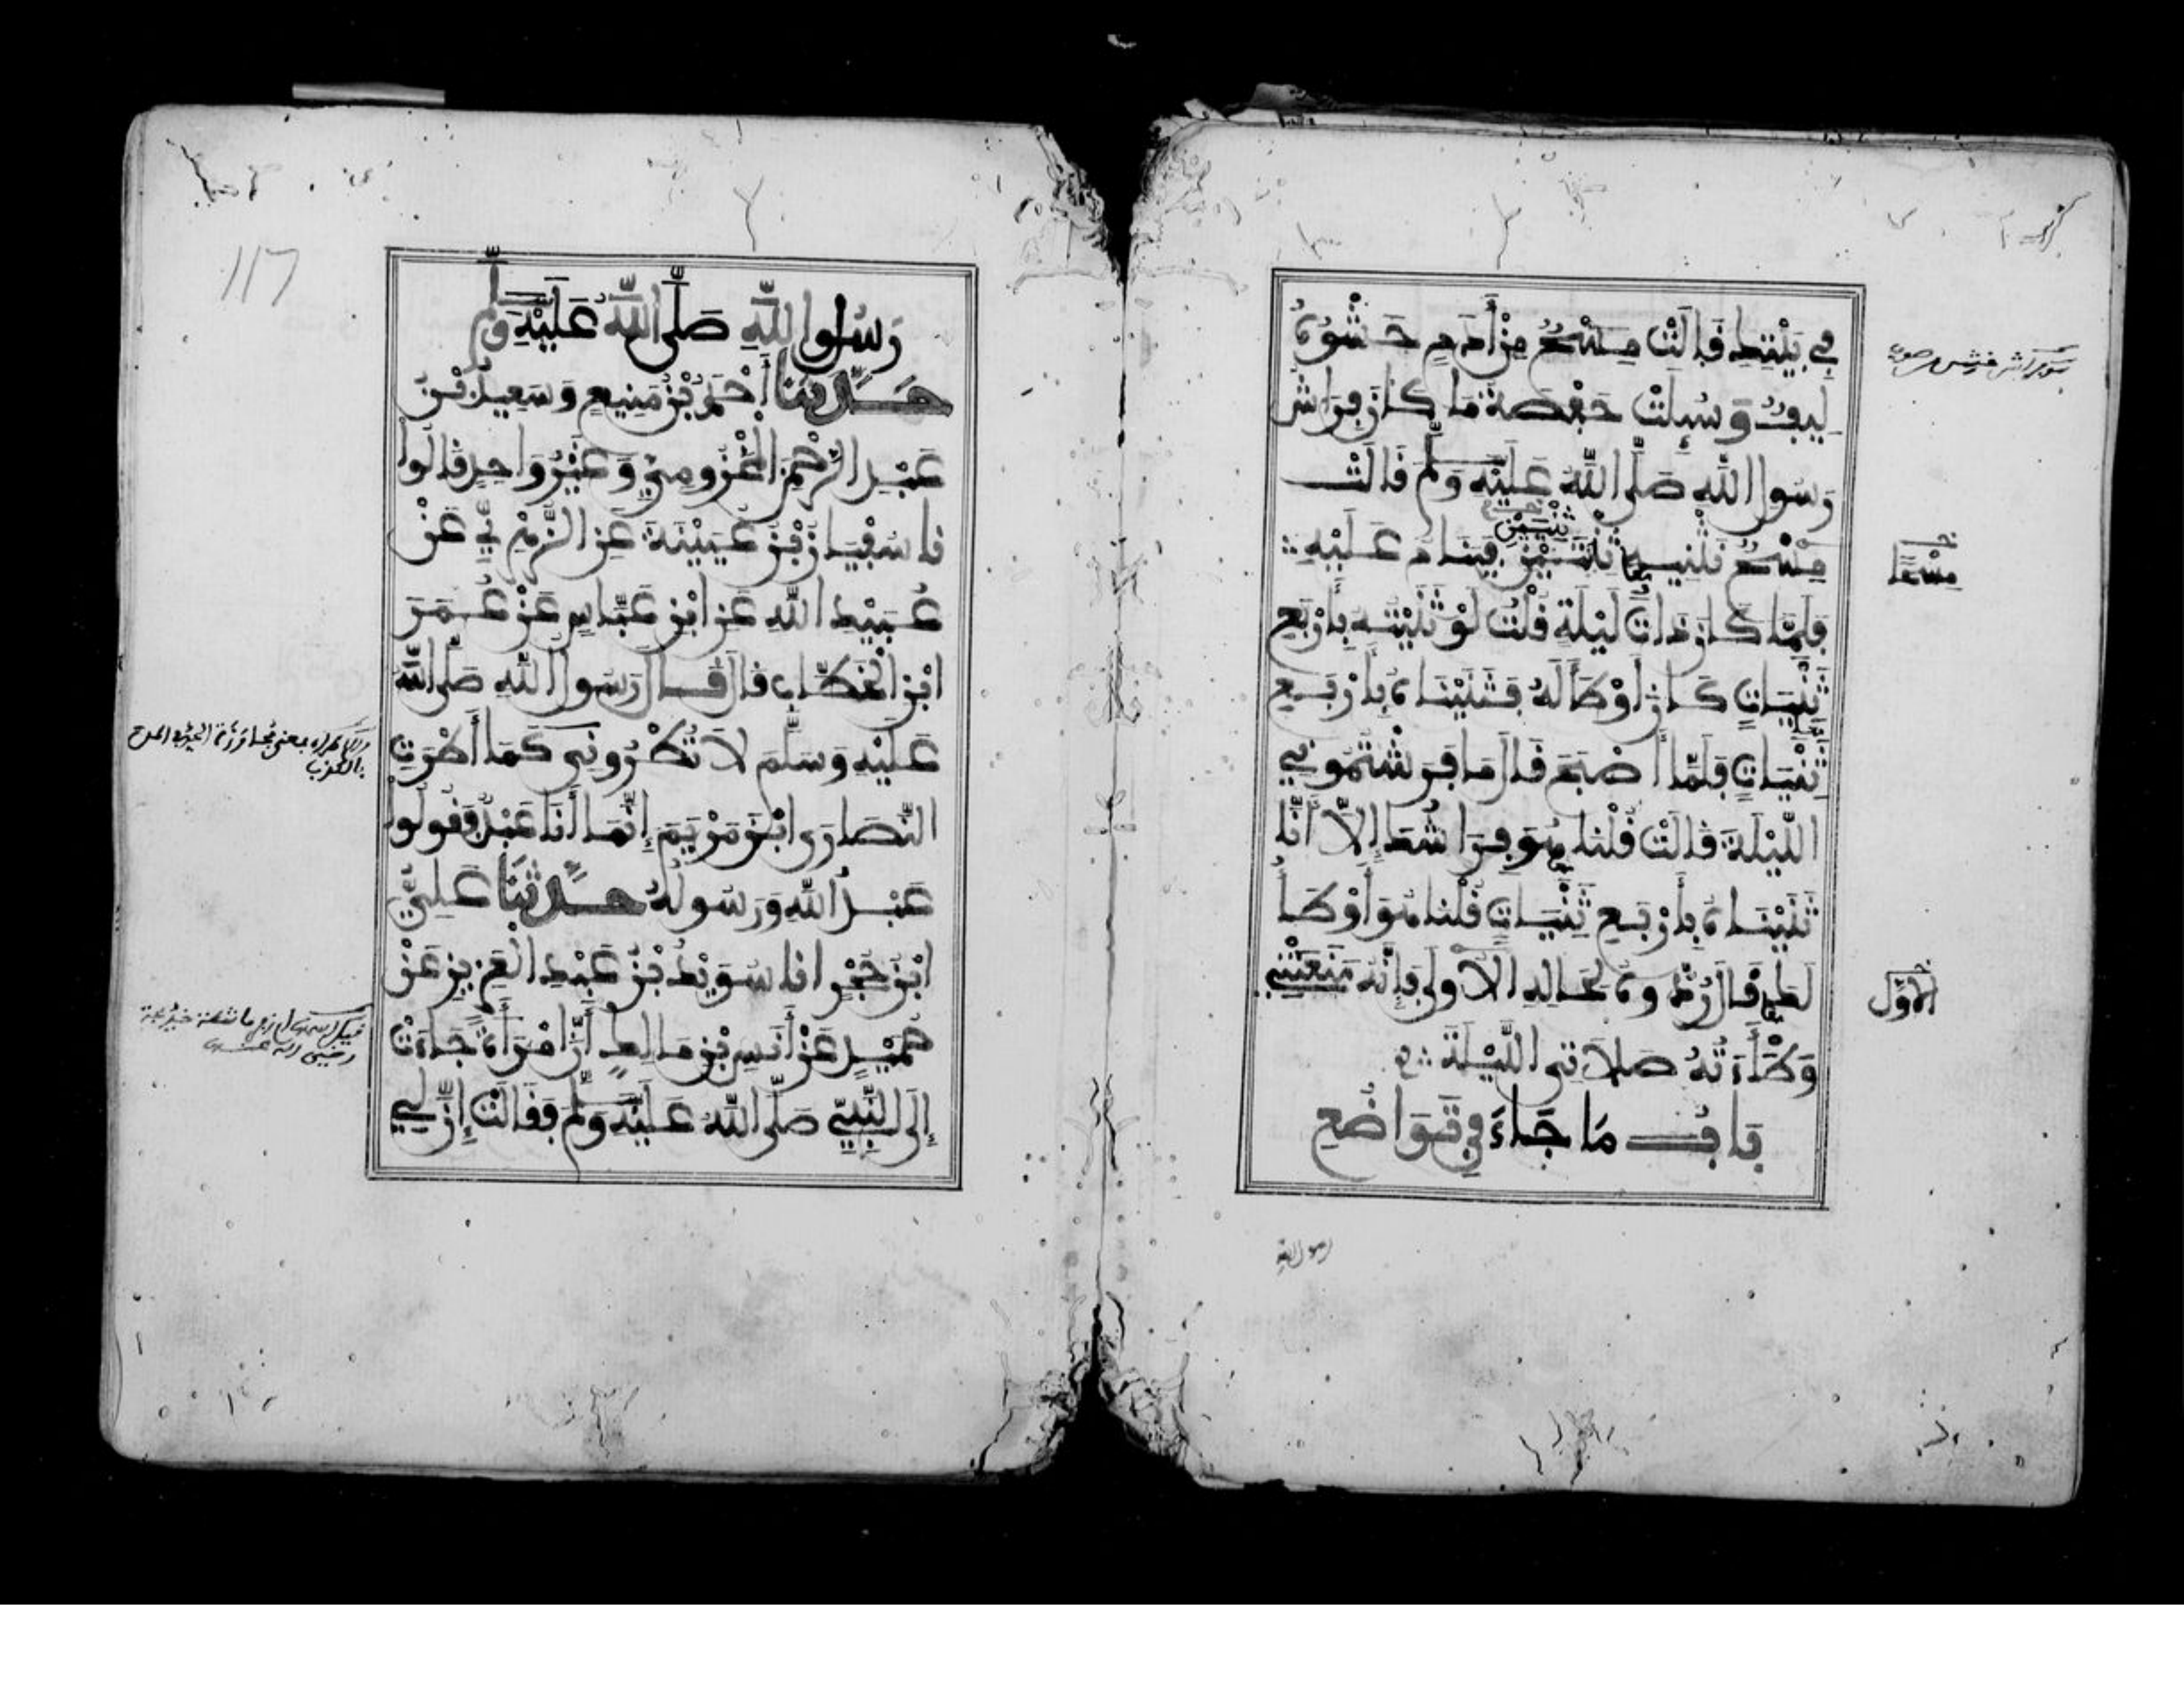 في بيتك قالت من أدم حشوه
ليف وسيلت حفصة ما كان فراش
رسول الله صلى الله عليه وسلم قالت
نثنيه ثنيتين فينام عليه
ثنيتين
مسحا
فلما كان ذات ليلة قلت لو ثنيته بأربع
ثنيات كان أوطأ له فثنيناه بأربع
ثنيات فلما أصبح قال ما فرشتموني
الليلة قالت قلنا هو فراشك إلا أنا
ثنيناه بأربع ثنيات قلنا هو أوطأ
لك قال ردوه لحاله الأولى فإنه منعتني
الأول
وطأءته صلاتي الليلة
باب ما جاء في تواضع
رسول الله
117
رسول الله صلى الله عليه وسلم
حدثنا أحمد بن منيع وسعيد بن
عبد الرحمن المخزومي وغير واحد قالوا
نا سفين بن عيينة عن الزهري عن
عبيد الله عن ابن عباس عن عمر
ابن الخطاب قال قال رسول الله صلى الله
عليه وسلم لا تطروني كما أطرت
النصارى ابن مريم إنما أنا عبد فقولوا
عبد الله ورسوله حدثنا علي
ابن حجر انا سويد بن عبد العزيز عن
حميد عن أنس بن مالك أن امرأة جاءت
إلى النبي صلى الله عليه وسلم فقالت إن لي